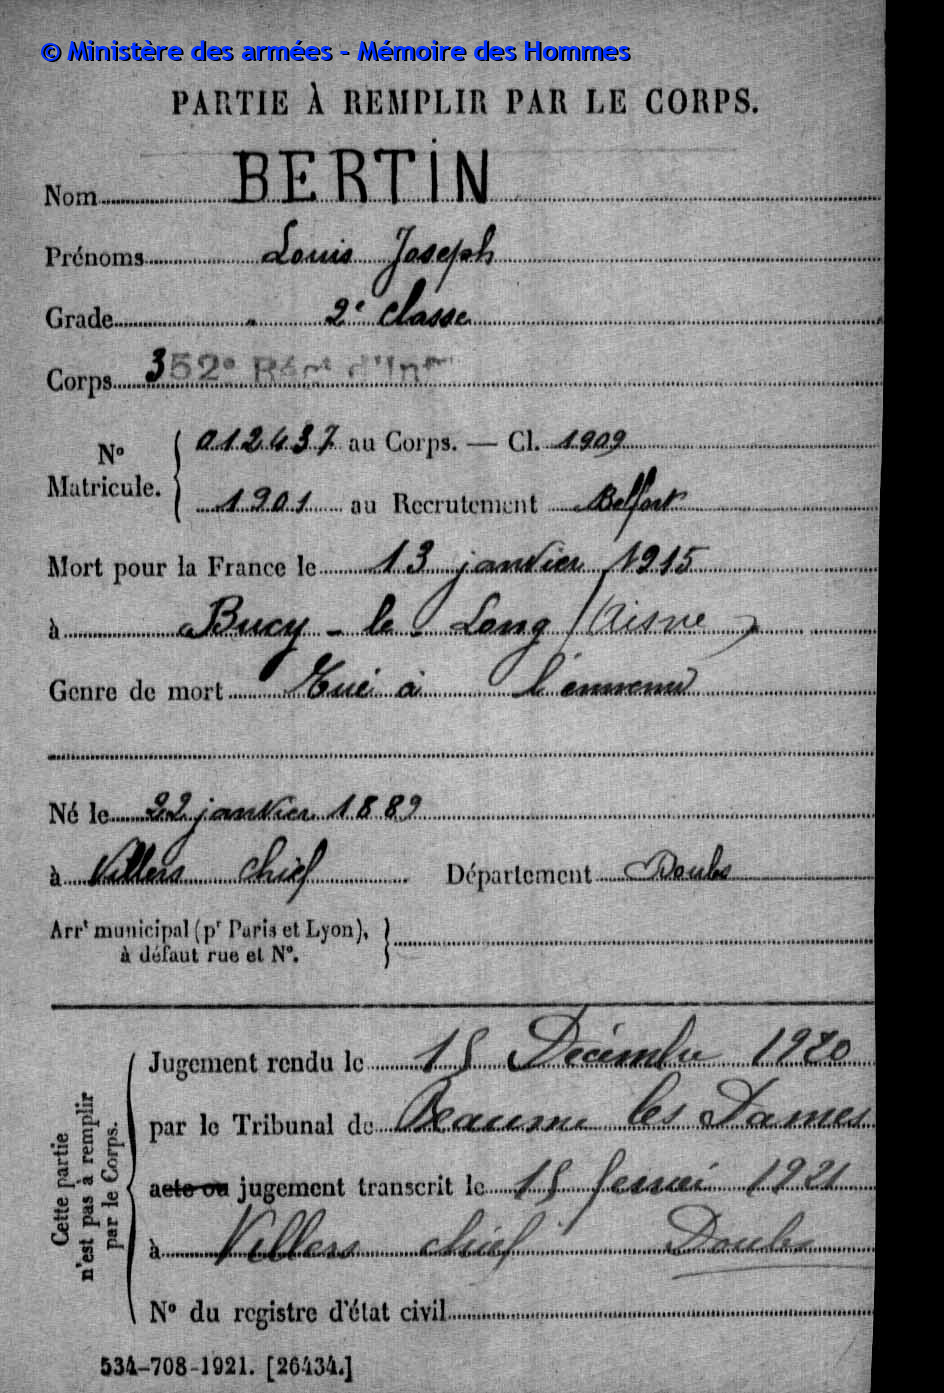 © Ministère des armées - Mémoire des Hommes
PARTIE À REMPLIR PAR LE CORPS.
Nom BERTIN
Prénoms Louis Joseph
Grade 2e classe
Corps 352e Régt d'Infie
No Matricule. { 012437 au Corps. — Cl. 1909
1901 au Recrutement Belfort
Mort pour la France le 13 janvier 1915
à Bucy-le-Long (Aisne)
Genre de mort Tué à l'ennemi
Né le 22 janvier 1889
à Villers Chief Département Doubs
Arrt municipal (pr Paris et Lyon),
à défaut rue et No.
Cette partie
n'est pas à remplir
par le Corps.
Jugement rendu le 15 Décembre 1920
par le Tribunal de Beaume les Dames
acte ou jugement transcrit le 15 fevrier 1921
à Villers chief Doubs
No du registre d'état civil
534-708-1921. [26434.]